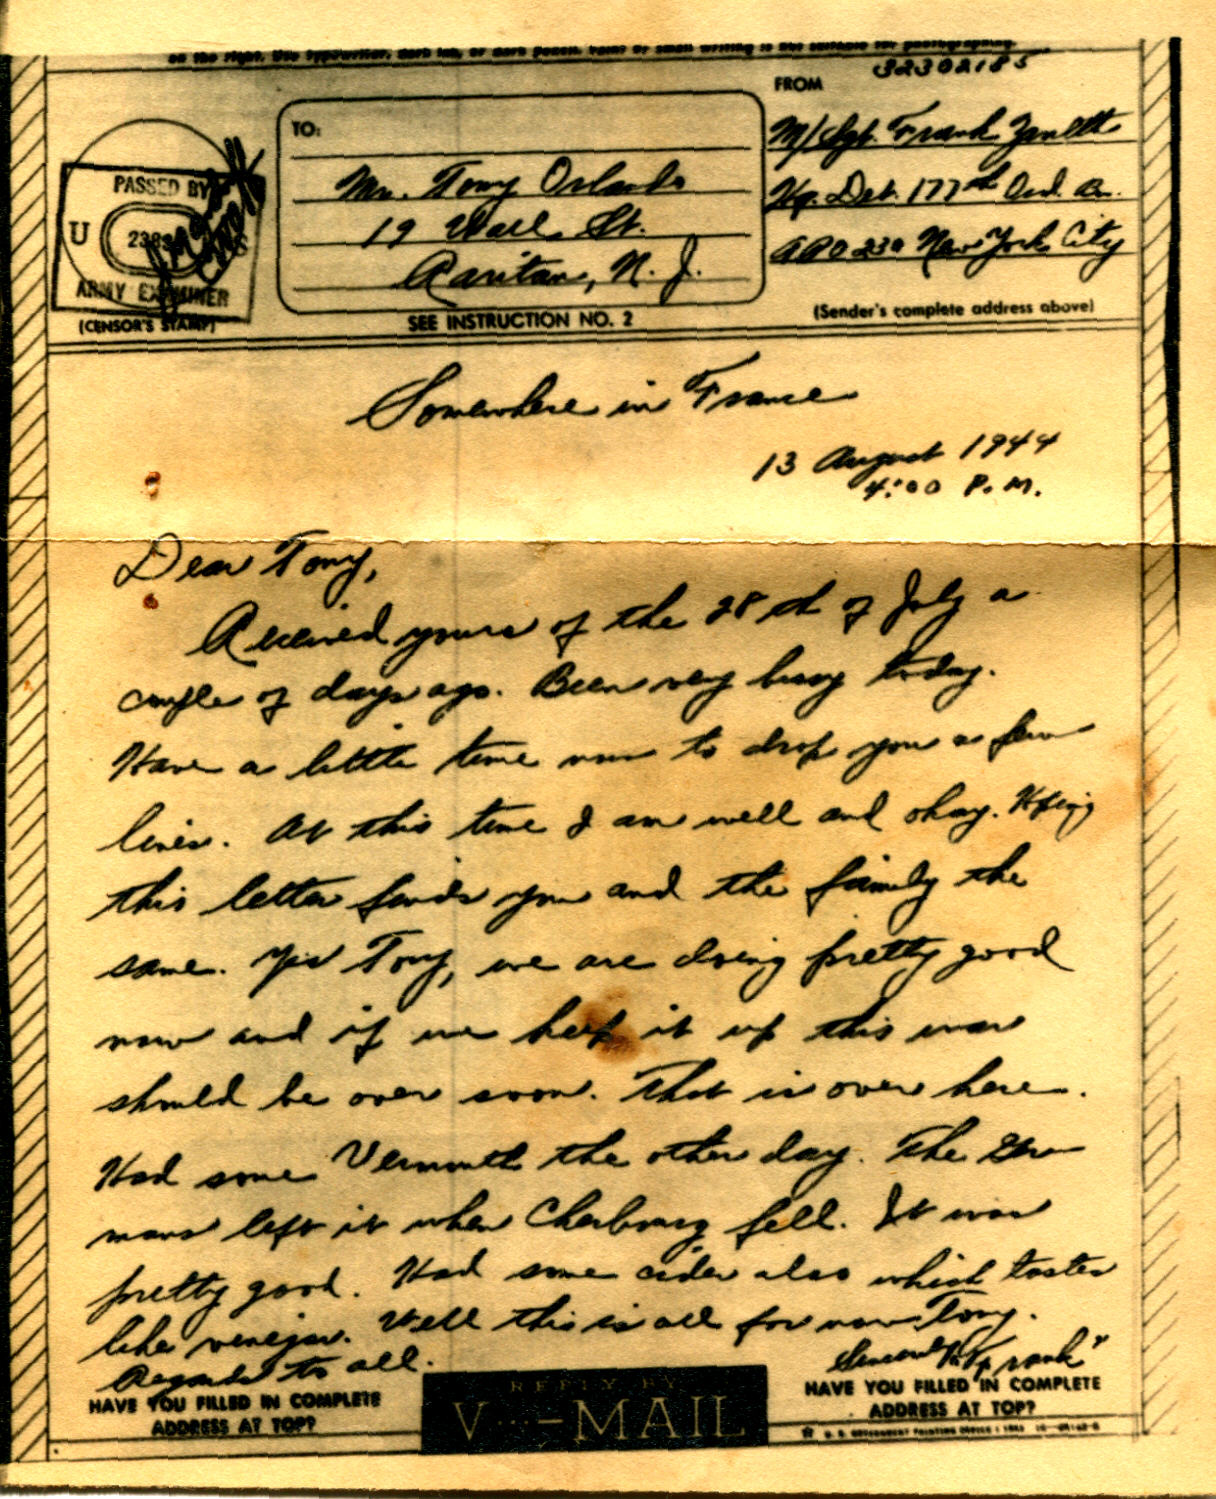 on the right. Use typewriter, dark ink, or dark pencil. Faint or small writing is not suitable for photographing.
32302185
FROM
TO:
M/Sgt. Frank
Mr. Tony Orlando
Hq. Det. 177th Ord. Bn.
19 Wall St.
APO 230 New York City
Raritan, N. J.
(Sender's complete address above)
PASSED BY
U S
ARMY EXAMINER
(CENSOR'S STAMP)
SEE INSTRUCTION NO. 2
Somewhere in France
13 August 1944
4:00 P.M.
Dear Tony,
Received yours of the 28th of July a
couple of days ago. Been very busy today.
Have a little time now to drop you a few
lines. At this time I am well and okay. Hoping
this letter finds you and the family the
same. Yes Tony, we are doing pretty good
now and if we keep it up this war
should be over soon. That is over here.
Had some Vermouth the other day. The Ger
mans left it when Cherbourg fell. It was
pretty good. Had some cider also which tastes
like venegar. Well this is all for now Tony.
Regards to all.
Sincerely "Frank"
HAVE YOU FILLED IN COMPLETE
ADDRESS AT TOP?
REPLY BY
V···—MAIL
HAVE YOU FILLED IN COMPLETE
ADDRESS AT TOP?
U. S. GOVERNMENT PRINTING OFFICE : 1943